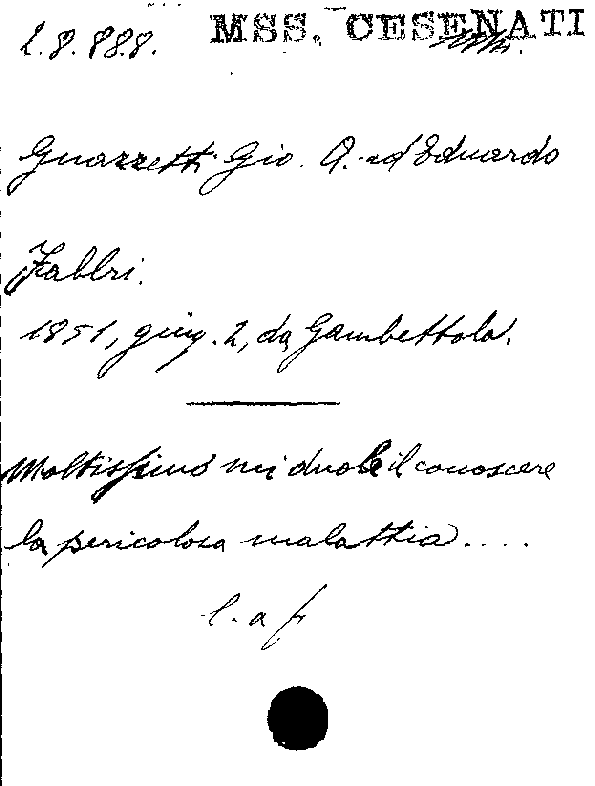 2.8.888. MSS. CESENATI
Guazzetti Gio. A. ad Eduardo
Fabbri.
1851, giug. 2, da Gambettola.
Moltissimo mi duole il conoscere
la pericolosa malattia....
l. a f